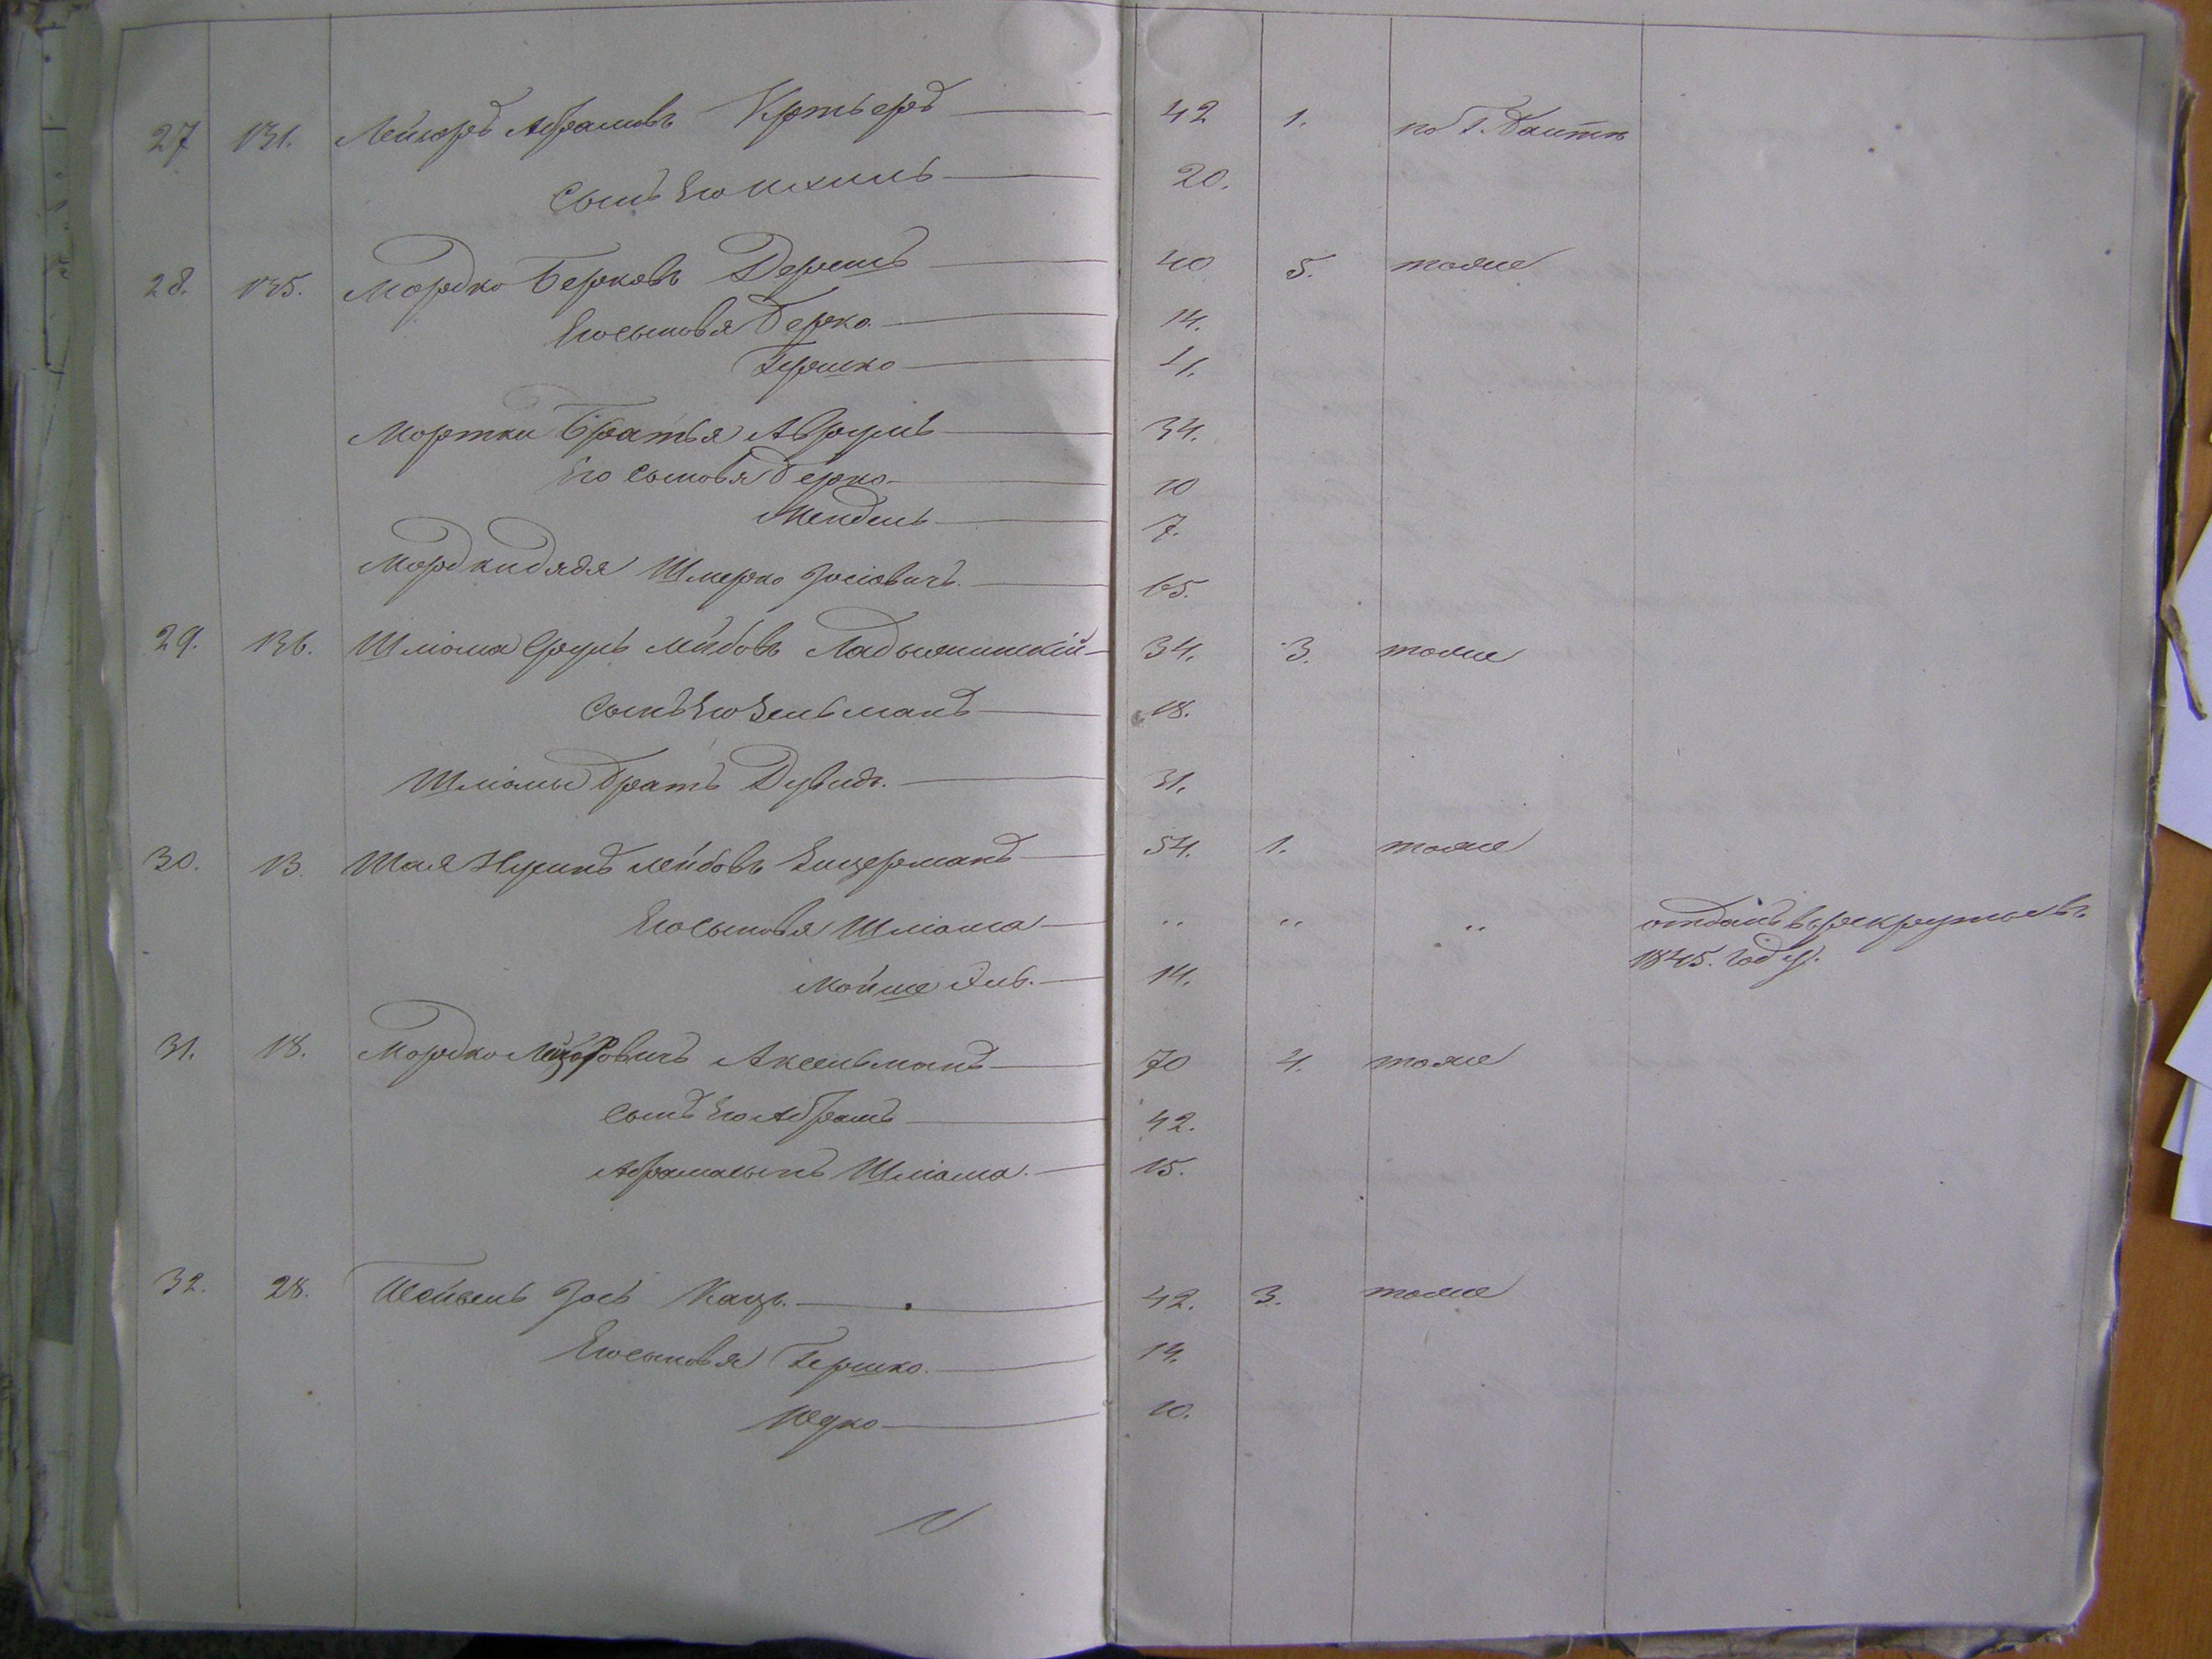 27 131. Лейзоръ Абрамовъ 42 1. по г. Балтѣ
сынъ его Ихиль 20.
28. 135. Мордко Берковъ 40 5. тоже
Его сыновья Берко 14.
Гершко 11.
Мортки Братья Аврумъ 34.
Его сыновья Берко 10
Мендель 7.
Мордки дядя Шмерко Іосіовичъ. 65.
29. 136. Шліома Сруль Лейбовъ Ладыжинскій 34. 3. тоже
сынъ его Зельманъ 18.
Шліомы братъ Дувидъ. 31.
30. 13. Шая Нусинъ Лейбовъ 54. 1. тоже
Его сыновья Шліома " " " отданъ в рекруты въ
1845. году.
Мойше Эль. 14.
31. 18. Мордко Лейзоровичъ Аксельманъ 70 4. тоже
сынъ его Абрамъ 42.
Абрама сынъ Шліома. 15.
32. 28. Іось Кацъ. 42. 3. тоже
Его сыновья Гершко. 14.
Юдко 10.